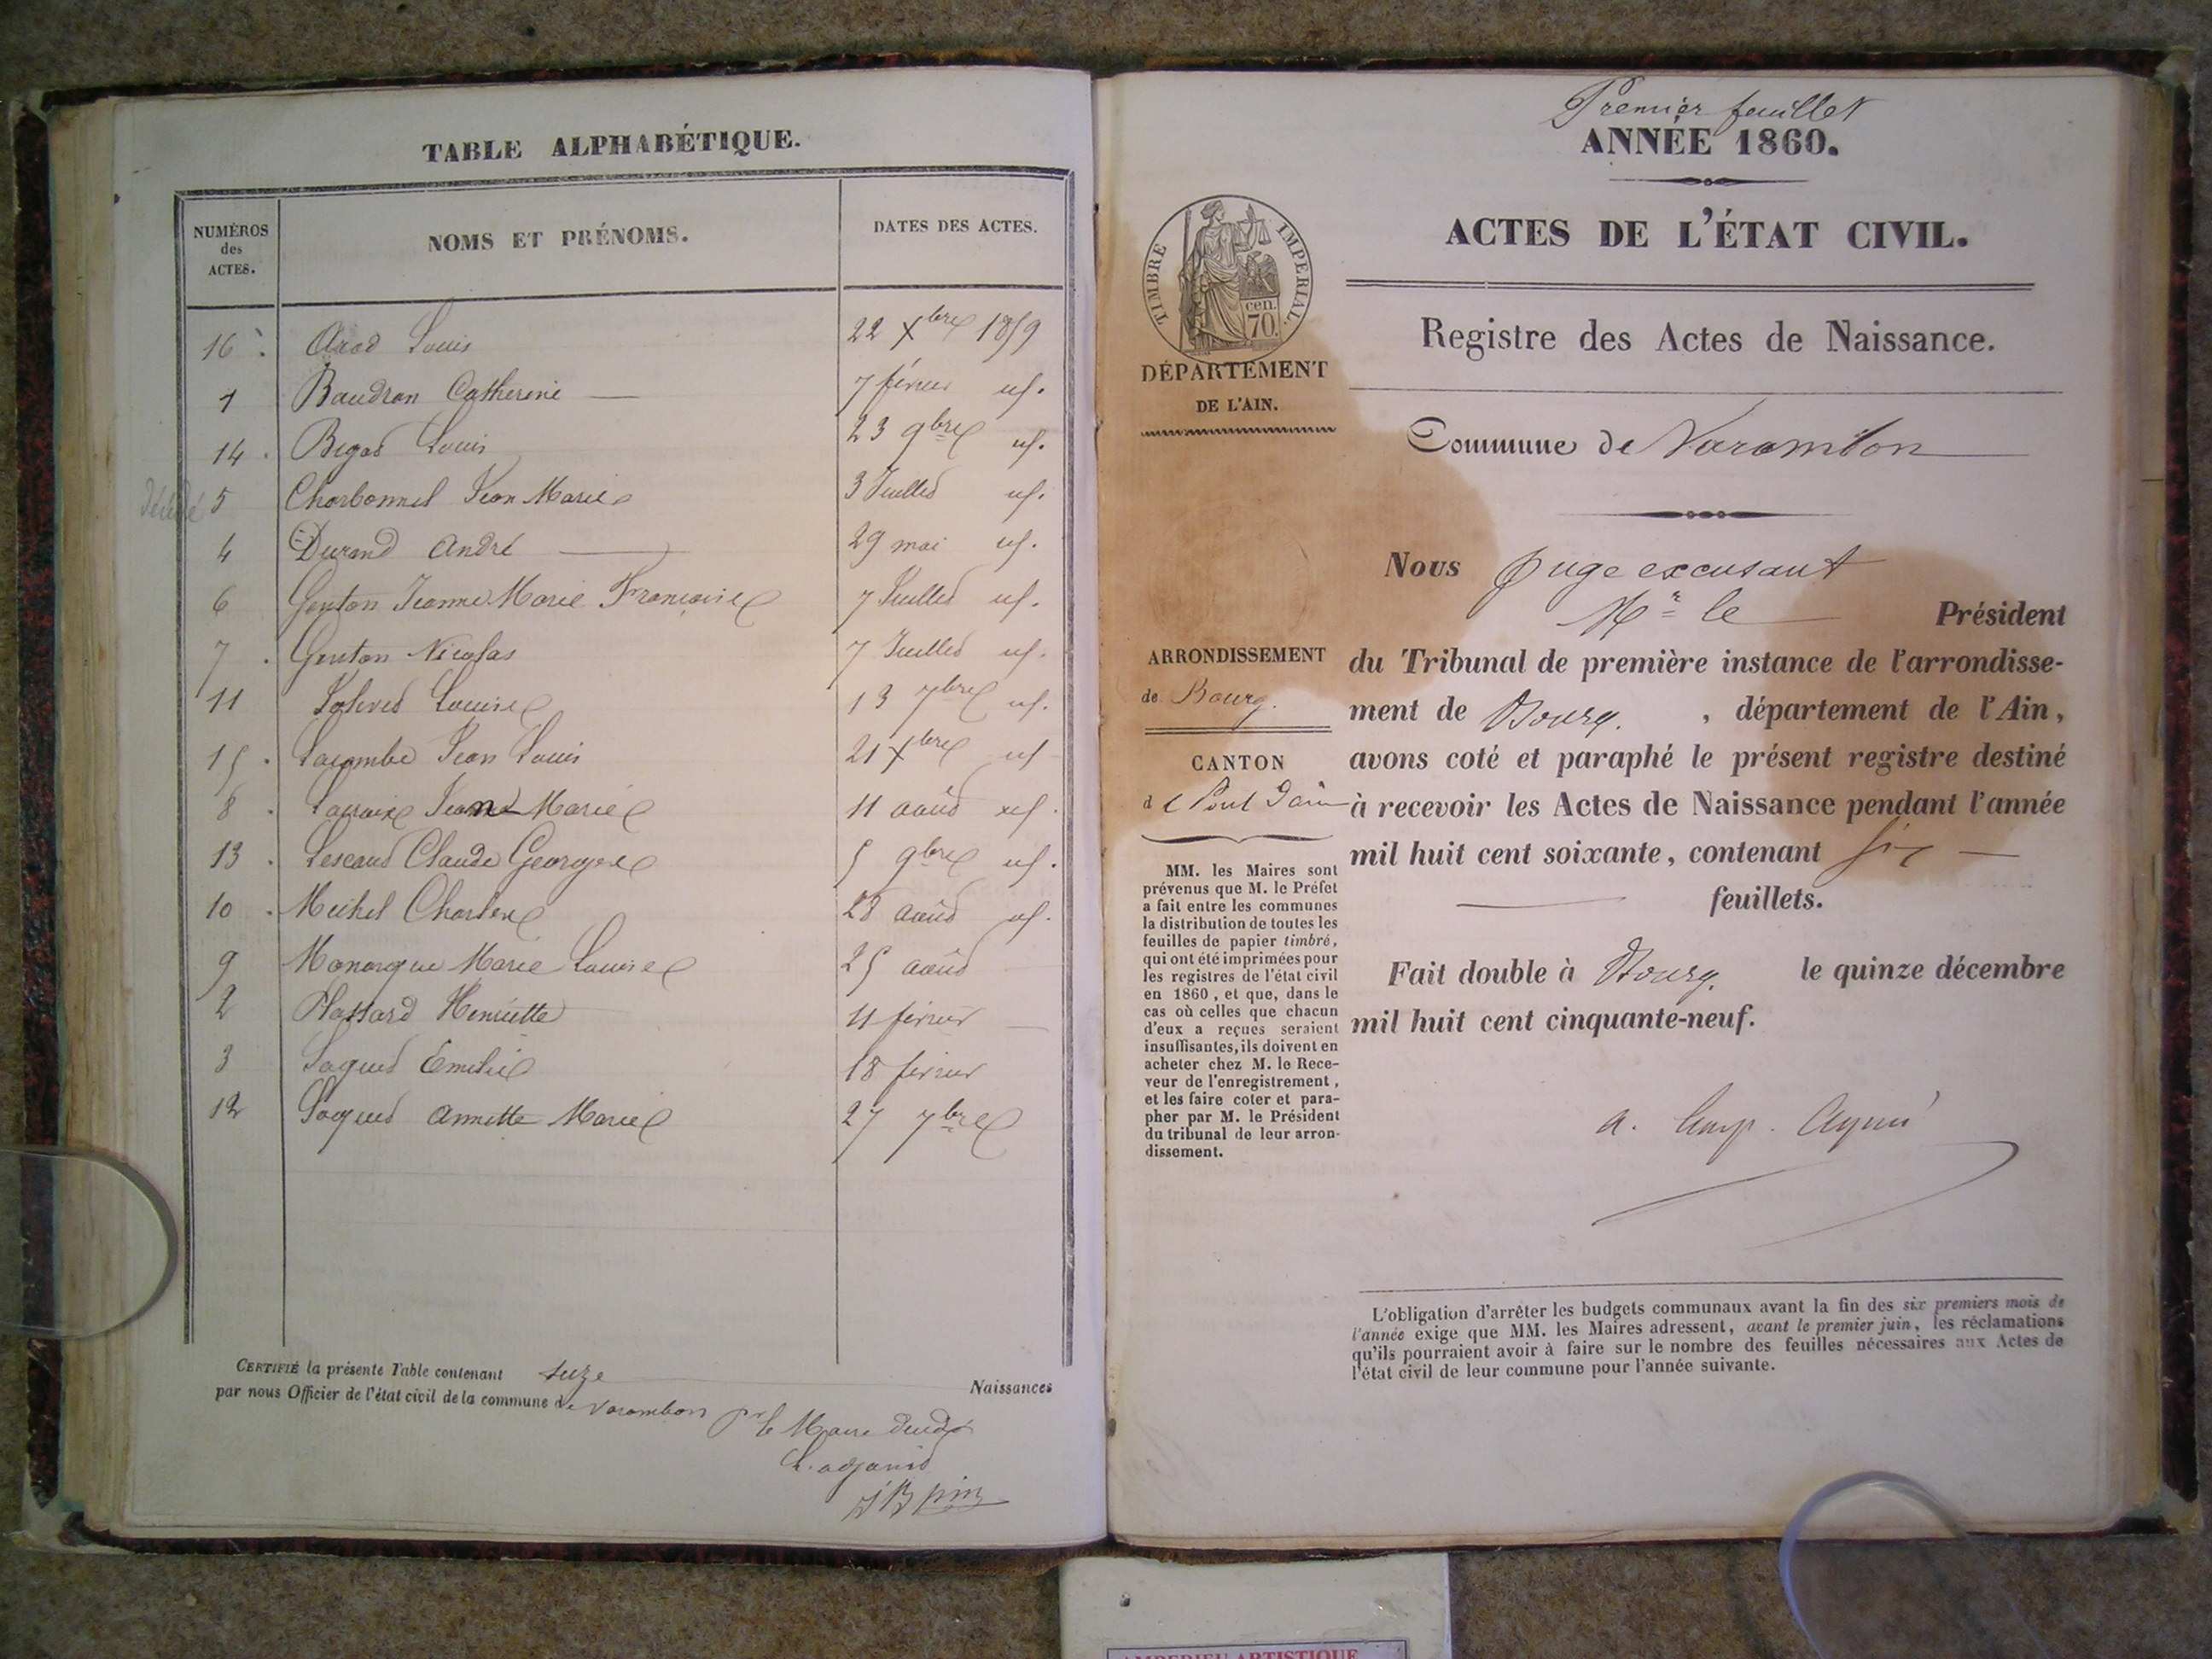 TABLE ALPHABÉTIQUE.
NUMÉROS des ACTES.
NOMS ET PRÉNOMS.
DATES DES ACTES.
16 Louis 22 Xbre 1859
1 Baudran Catherine 7 février id.
14 Louis 23 9bre id.
5 Charbonnel Jean Marie 3 Juillet id.
4 Durand André 29 mai id.
6 Genton Jeanne Marie Françoise 7 Juillet id.
7 Genton Nicolas 7 Juillet id.
11 Louise 13 7bre id.
15 Lacombe Jean Louis 21 Xbre id
8 Lacroix Jeanne Marie 11 août id.
13 Claude George 5 9bre id.
10 Michel Charles 28 août id.
9 Monarque Marie Louise 25 août
2 Henriette 11 février
3 Saquet Émilie 18 février
12 Saquet Annette Marie 27 7bre
CERTIFIÉ la présente Table contenant seize Naissances
par nous Officier de l'état civil de la commune de Varambon pr le Maire
L'adjoint
Premier feuillet
ANNÉE 1860.
TIMBRE IMPÉRIAL.
cen. 70.
ACTES DE L'ÉTAT CIVIL.
Registre des Actes de Naissance.
DÉPARTEMENT
DE L'AIN.
Commune de Varambon
Nous Juge excusant
Mr le Président
du Tribunal de première instance de l'arrondisse-
ment de Bourg. , département de l'Ain,
avons coté et paraphé le présent registre destiné
à recevoir les Actes de Naissance pendant l'année
mil huit cent soixante, contenant six
feuillets.
Fait double à Bourg. le quinze décembre
mil huit cent cinquante-neuf.
ARRONDISSEMENT
de Bourg.
CANTON
de Pont d'ain
MM. les Maires sont
prévenus que M. le Préfet
a fait entre les communes
la distribution de toutes les
feuilles de papier timbré,
qui ont été imprimées pour
les registres de l'état civil
en 1860, et que, dans le
cas où celles que chacun
d'eux a reçues seraient
insuffisantes, ils doivent en
acheter chez M. le Rece-
veur de l'enregistrement,
et les faire coter et para-
pher par M. le Président
du tribunal de leur arron-
dissement.
L'obligation d'arrêter les budgets communaux avant la fin des six premiers mois de
l'année exige que MM. les Maires adressent, avant le premier juin, les réclamations
qu'ils pourraient avoir à faire sur le nombre des feuilles nécessaires aux Actes de
l'état civil de leur commune pour l'année suivante.
AMBERIEU ARTISTIQUE